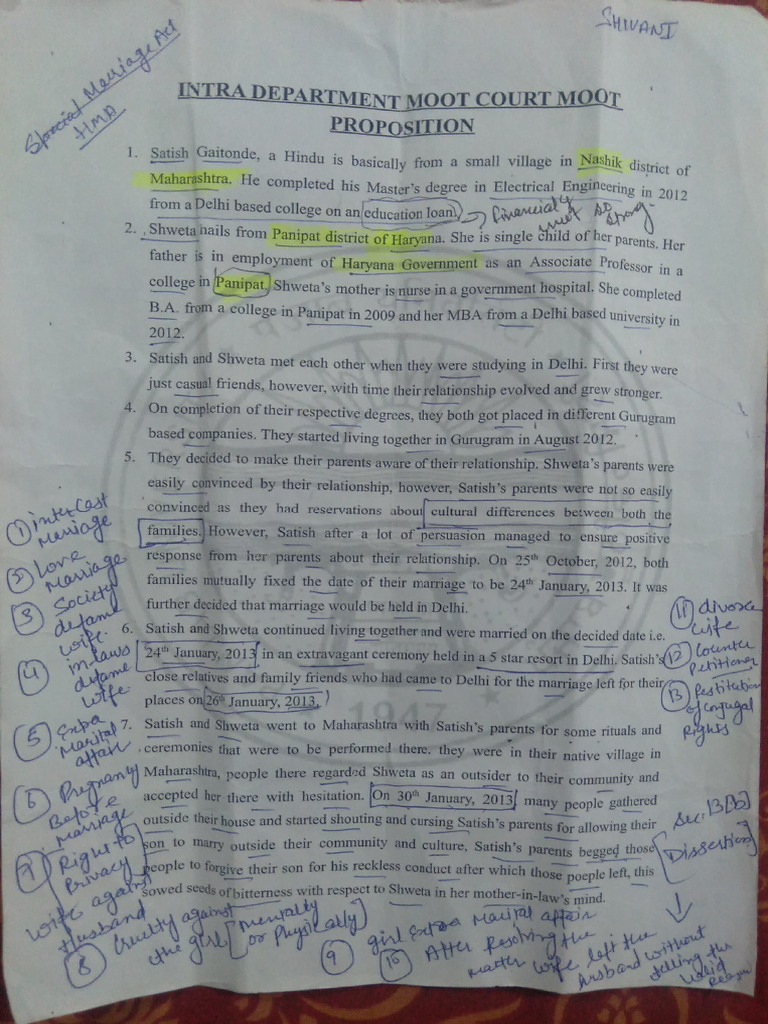 SHIVANI
Special Marriage Act
HMA
INTRA DEPARTMENT MOOT COURT MOOT
PROPOSITION
1. Satish Gaitonde, a Hindu is basically from a small village in Nashik district of
Maharashtra. He completed his Master's degree in Electrical Engineering in 2012
from a Delhi based college on an education loan.
→ financially
not so
strong
2. Shweta hails from Panipat district of Haryana. She is single child of her parents. Her
father is in employment of Haryana Government as an Associate Professor in a
college in Panipat. Shweta's mother is nurse in a government hospital. She completed
B.A. from a college in Panipat in 2009 and her MBA from a Delhi based university in
2012.
3. Satish and Shweta met each other when they were studying in Delhi. First they were
just casual friends, however, with time their relationship evolved and grew stronger.
4. On completion of their respective degrees, they both got placed in different Gurugram
based companies. They started living together in Gurugram in August 2012.
5. They decided to make their parents aware of their relationship. Shweta's parents were
easily convinced by their relationship, however, Satish's parents were not so easily
convinced as they had reservations about cultural differences between both the
families. However, Satish after a lot of persuasion managed to ensure positive
response from her parents about their relationship. On 25th October, 2012, both
families mutually fixed the date of their marriage to be 24th January, 2013. It was
further decided that marriage would be held in Delhi.
6. Satish and Shweta continued living together and were married on the decided date i.e.
24th January, 2013 in an extravagant ceremony held in a 5 star resort in Delhi. Satish's
close relatives and family friends who had came to Delhi for the marriage left for their
places on 26th January, 2013.
7. Satish and Shweta went to Maharashtra with Satish's parents for some rituals and
ceremonies that were to be performed there. they were in their native village in
Maharashtra, people there regarded Shweta as an outsider to their community and
accepted her there with hesitation. On 30th January, 2013 many people gathered
outside their house and started shouting and cursing Satish's parents for allowing their
son to marry outside their community and culture. Satish's parents begged those
people to forgive their son for his reckless conduct after which those poeple left, this
sowed seeds of bitterness with respect to Shweta in her mother-in-law's mind.
1947
① interCast
Marriage
② Love
Marriage
③ Society
defame
wife.
④ in-laws
defame
wife
⑤ Extra
Marital
affair
⑥ Pregnancy
Before
Marriage
⑦ Right to
Privacy
wife against
Husband
⑧ Cruelty against
the girl [Mentality
or Physically]
⑨ girl Extra Marital affair
⑩ After Resolving the
matter wife left the
husband without
telling the
valid
reason
⑪ divorce
wife
⑫ Counter
Petitioner
⑬ Restitution
of conjugal
Rights
Sec. 13[b]
[Dissertion]